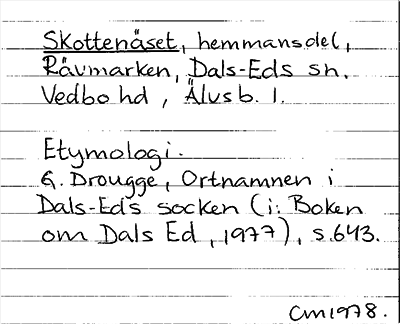 Skottenäset, hemmansdel,
Rävmarken, Dals-Eds sn.
Vedbo hd, Älvsb. l.
Etymologi.
G. Drougge, Ortnamnen i
Dals-Eds socken (i: Boken
om Dals Ed, 1977), s. 643.
Cm1978.